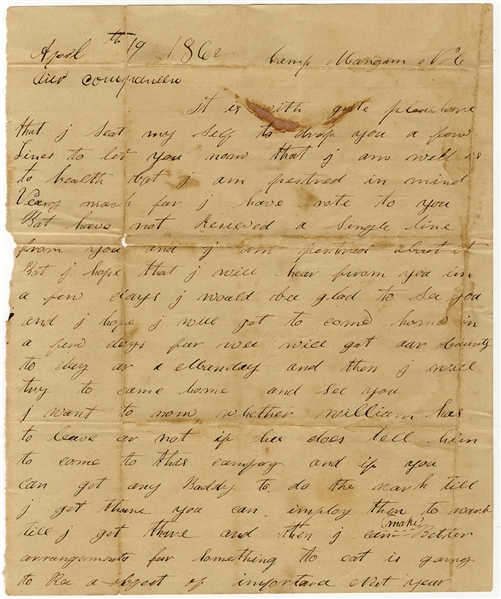 April th 19 1862 Camp Mangum N C
Dier companien
It is with grate pleashure
that j seat my self to drop you a few
Lines to let you now that j am well as
to health bot j am pestred in mind
Veary mach far j have rote to you
Bat have not Resieved a Single line
from you and j am pestred abart it
Bat j hope that j will hear fram you in
a few days j would bee glad to See you
and j hope j will got to come home in
a few days far wee will got aur Baunty
to day ar a Manday and then j will
try to came home and See you
j want to now whether William has
to leave ar not if hee does tell him
to come to this campny and if you
can get any Baddy to do the wark till
j get thare you can imploy them to wark
till j get thare and then j can make Better
arrangements far Something to eat is going
to Be a obgect of importand Next year